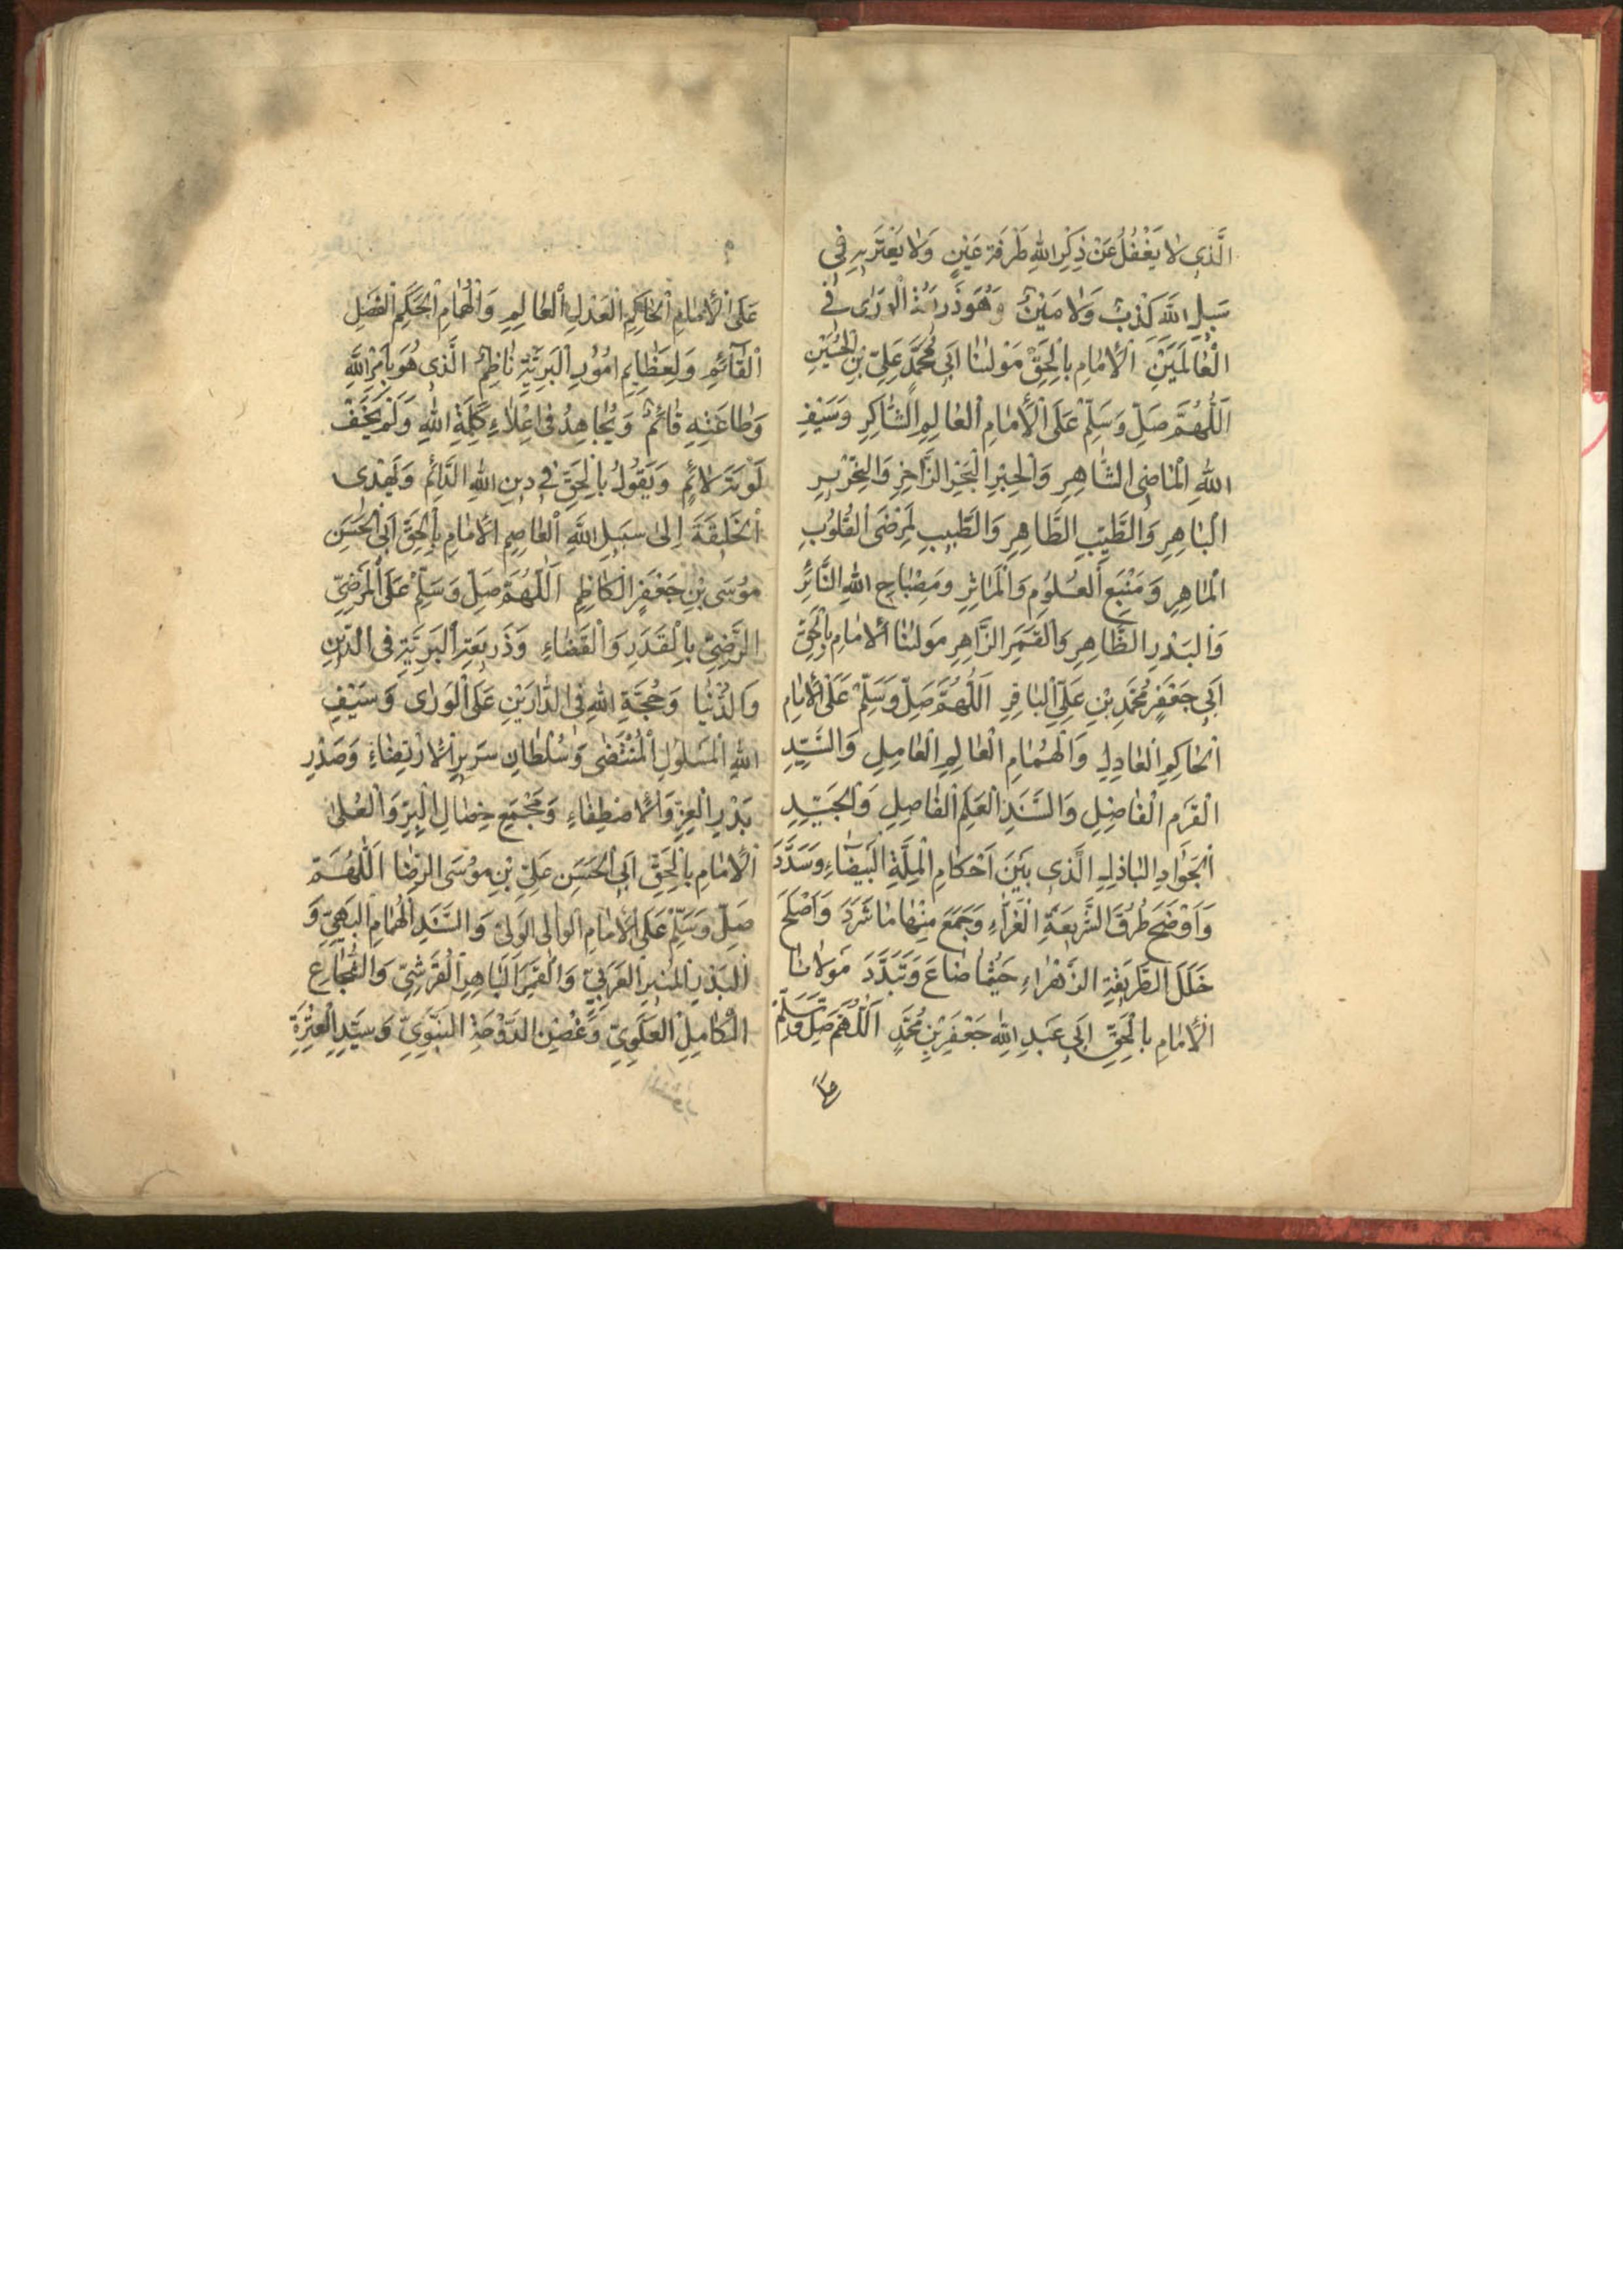 الَّذِي لَا يَغْفُلُ عَنْ ذِكْرِ اللهِ طَرْفَةَ عَيْنٍ وَلَا يَعْتَرِيهِ فِي
سَبِيلِ اللهِ كَذِبٌ وَلَا مَيْنٌ وَهُوَ ذَرِيعَةُ الْوَرَى فِي
الْعَالَمَيْنِ الْأِمَامِ بِالْحَقِّ مَوْلَنَا اَبِي مُحَمَّدٍ عَلِيِّ بْنِ الْحُسَيْنِ
اَللّٰهُمَّ صَلِّ وَسَلِّمْ عَلَى الْأِمَامِ الْعَالِمِ الشَّاكِرِ وَسَيْفِ
اللهِ الْمَاضِي الشَّاهِرِ وَالْحِبْرِ الْبَحْرِ الزَّاخِرِ وَالنِّحْرِيرِ
الْبَاهِرِ وَالطَّيِّبِ الطَّاهِرِ وَالطَّبِيبِ لِمَرْضَى الْقُلُوبِ
الْمَاهِرِ وَمَنْبَعِ الْعُلُومِ وَالْمَاثِرِ وَمِصْبَاحِ اللهِ النَّائِرِ
وَالْبَدْرِ الظَّاهِرِ وَالْقَمَرِ الزَّاهِرِ مَوْلَنَا الْأِمَامِ بِالْحَقِّ
اَبِي جَعْفَرٍ مُحَمَّدِ بْنِ عَلِيِّ الْبَاقِرِ اَللّٰهُمَّ صَلِّ وَسَلِّمْ عَلَى الْأِمَامِ
الْحَاكِمِ الْعَادِلِ وَالْهُمَامِ الْعَالِمِ الْعَامِلِ وَالسَّيِّدِ
الْقَرْمِ الْفَاضِلِ وَالسَّنَدِ الْعَلَمِ الْفَاصِلِ وَالْجَيِّدِ
الْجَوَادِ الْبَاذِلِ الَّذِي بَيَّنَ اَحْكَامَ الْمِلَّةِ الْبَيْضَاءِ وَسَدَّدَ
وَاَوْضَحَ طُرُقَ الشَّرِيعَةِ الْغَرَّاءِ وَجَمَعَ مِنْهَا مَا شَرَدَ وَاَصْلَحَ
خَلَلَ الطَّرِيقَةِ الزَّهْرَاءِ حَيْثُمَا ضَاعَ وَتَبَدَّدَ مَوْلَانَا
الْأِمَامِ بِالْحَقِّ اَبِي عَبْدِ اللهِ جَعْفَرِ بْنِ مُحَمَّدٍ اَللّٰهُمَّ صَلِّ وَسَلِّمْ
عَلَى الْأِمَامِ الْحَاكِمِ الْعَدْلِ الْعَالِمِ وَالْهُمَامِ الْحَكَمِ الْفَصْلِ
الْقَائِمِ وَلِعَظَايِمِ اُمُورِ الْبَرِيَّةِ نَاظِمٌ الَّذِي هُوَ بِاَمْرِ اللهِ
وَطَاعَتِهِ قَائِمٌ وَيُجَاهِدُ فِي اِعْلَاءِ كَلِمَةِ اللهِ وَلَمْ يَخَفْ
لَوْمَةَ لَائِمٍ وَيَقُولُ بِالْحَقِّ فِي دِينِ اللهِ الدَّائِمِ وَيَهْدِي
الْخَلِيقَةَ اِلَى سَبِيلِ اللهِ الْعَاصِمِ الْأِمَامِ بِالْحَقِّ اَبِي الْحَسَنِ
مُوسَى بْنِ جَعْفَرٍ الْكَاظِمِ اَللّٰهُمَّ صَلِّ وَسَلِّمْ عَلَى الْمَرْضِيِّ
الرَّضِيِّ بِالْقَدَرِ وَالْقَضَاءِ وَذَرِيعَةِ الْبَرِيَّةِ فِي الدِّينِ
وَالدُّنْيَا وَحُجَّةِ اللهِ فِي الدَّارَيْنِ عَلَى الْوَرَى وَسَيْفِ
اللهِ الْمَسْلُولِ الْمُنْتَضَى وَسُلْطَانِ سَرِيرِ الْأِرْتِضَاءِ وَصَدْرِ
بَدْرِ الْعِزِّ وَالْأِصْطِفَاءِ وَمَجْمَعِ خِصَالِ الْبِرِّ وَالْعُلَى
الْأِمَامِ بِالْحَقِّ اَبِي الْحَسَنِ عَلِيِّ بْنِ مُوسَى الرِّضَا اَللّٰهُمَّ
صَلِّ وَسَلِّمْ عَلَى الْأِمَامِ الْوَالِي الْوَلِيِّ وَالسَّنَدِ الْهُمَامِ الْبَهِيِّ وَ
الْبَدْرِ الْمُنِيرِ الْعَرَبِيِّ وَالْقَمَرِ الْبَاهِرِ الْقُرَشِيِّ وَالشُّجَاعِ
الْكَامِلِ الْعَلَوِيِّ وَغُصْنِ الدَّوْحَةِ النَّبَوِيِّ وَسَيِّدِ الْعِتْرَةِ